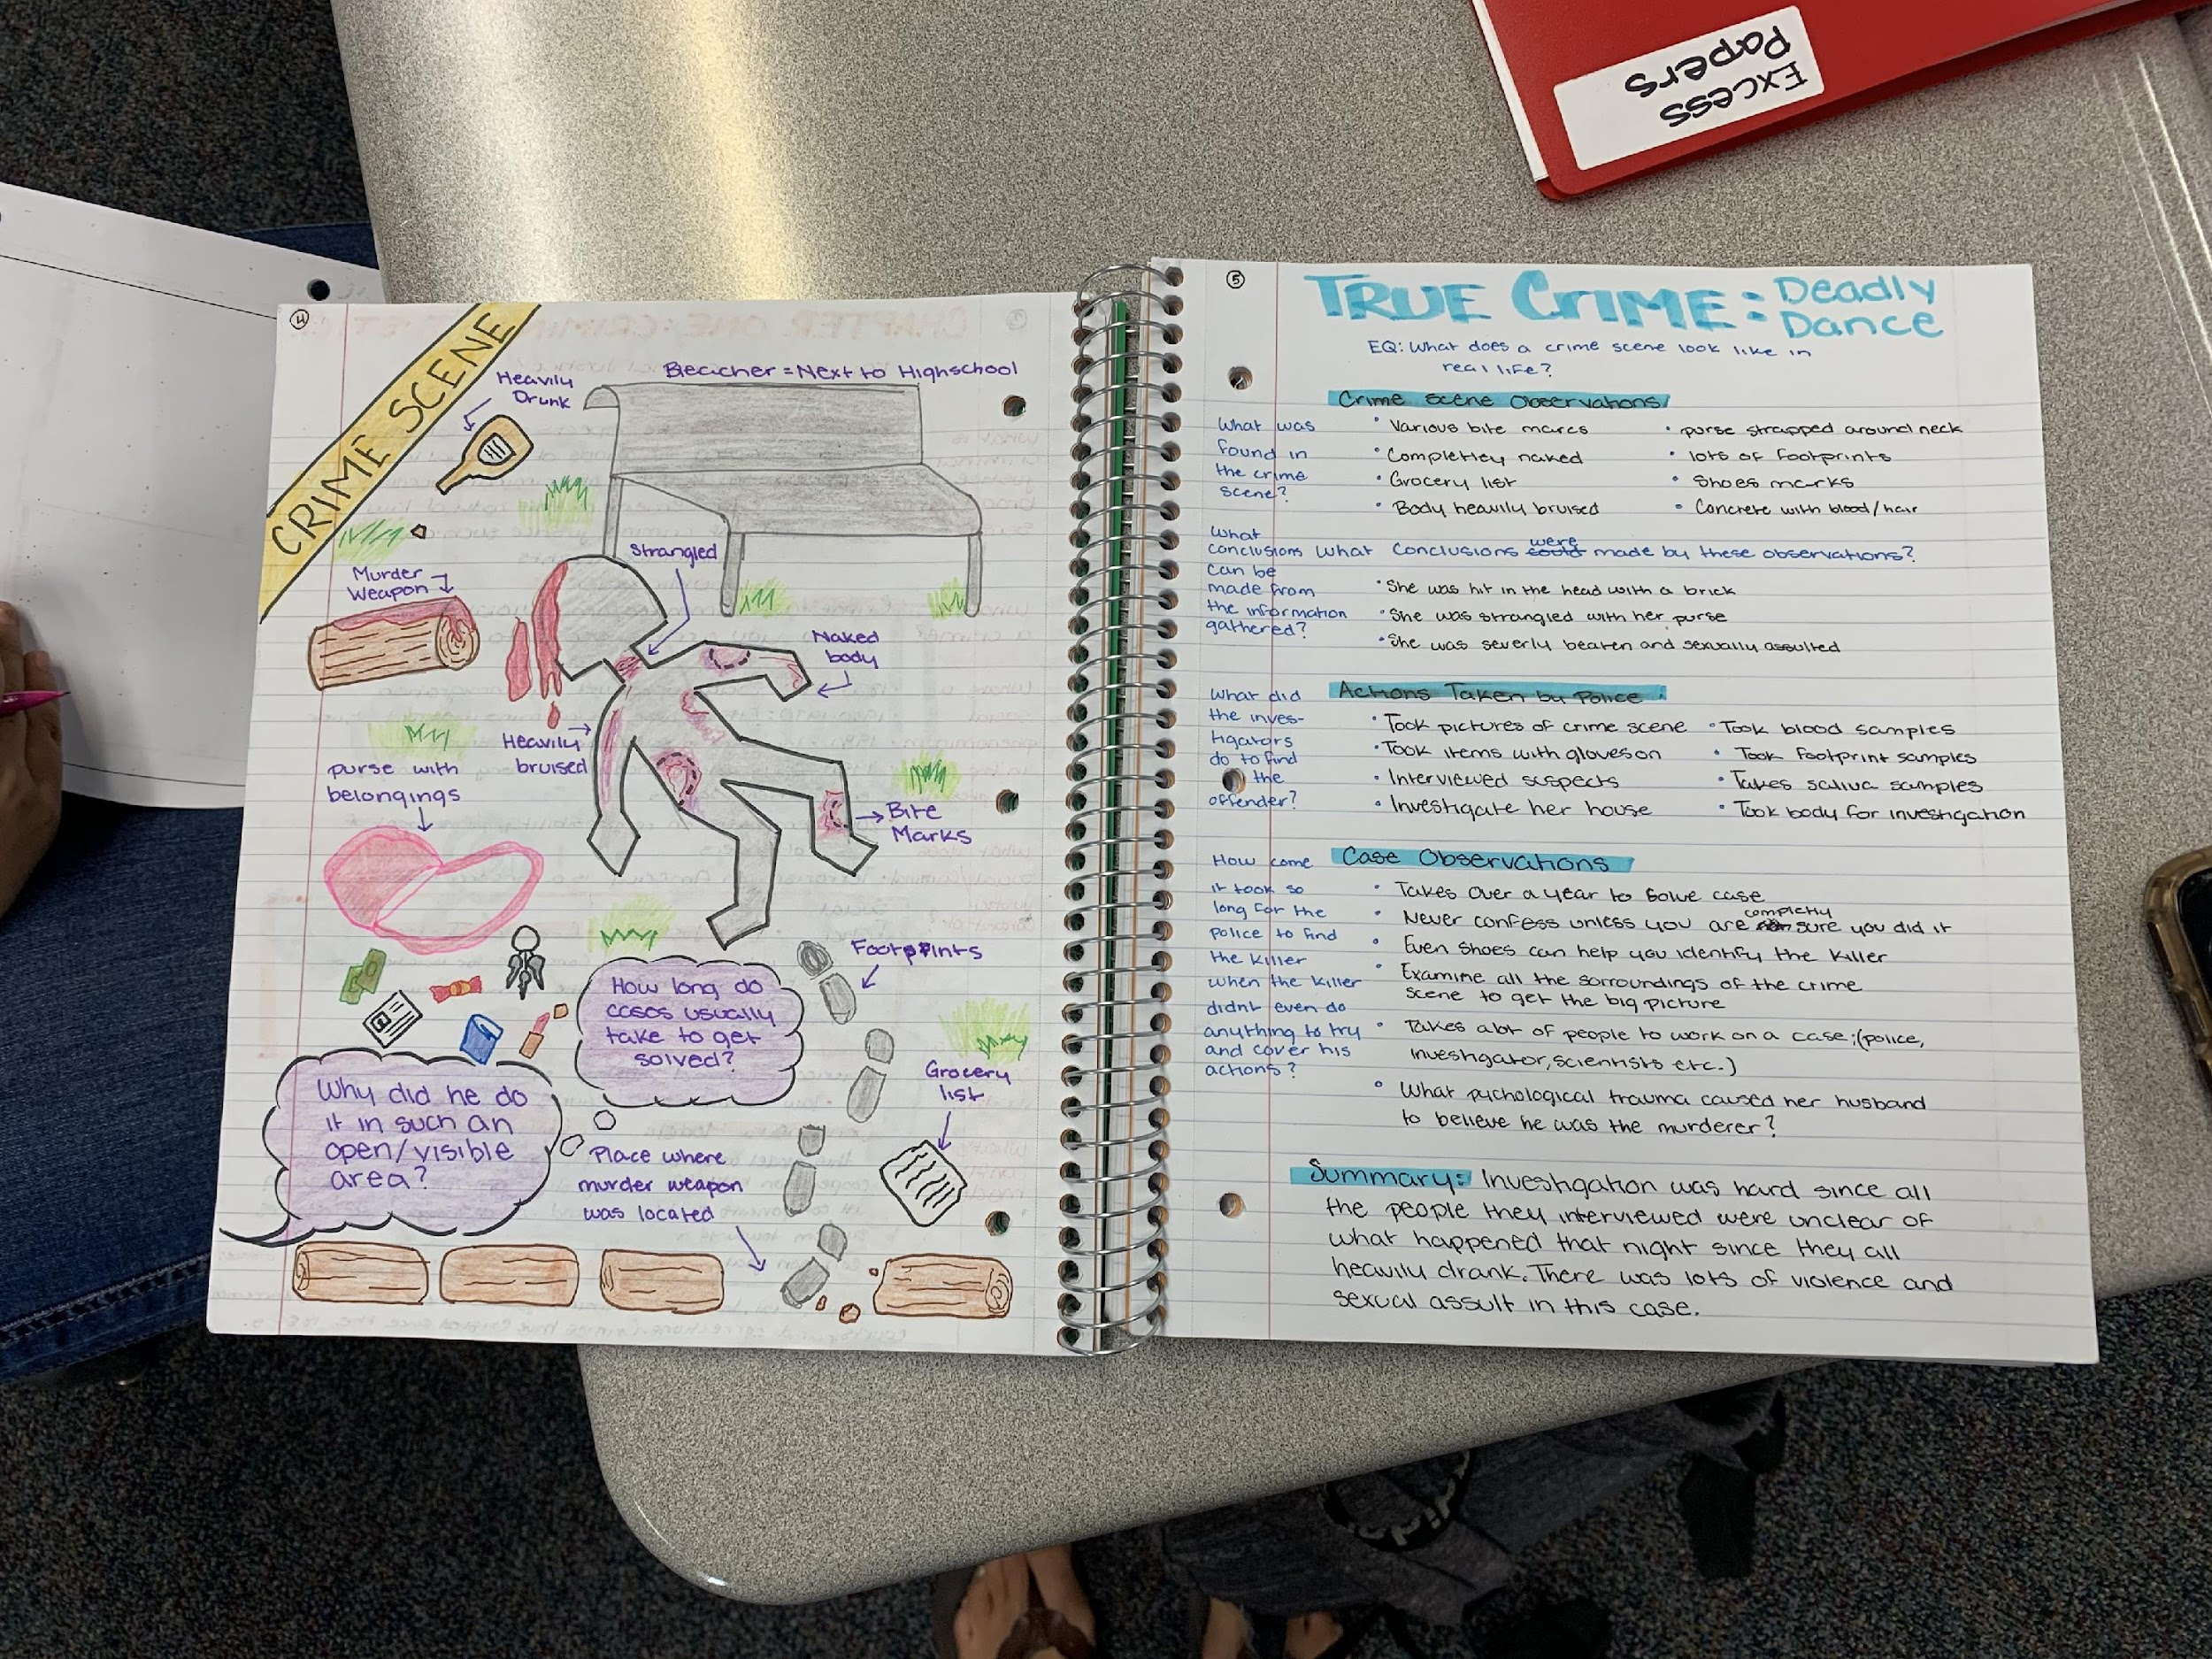 Excess
Papers
4
CRIME SCENE
Heavily
Drunk
Bleacher = Next to Highschool
Strangled
Murder
Weapon
Naked
body
Heavily
bruised
purse with
belongings
Bite
Marks
Footprints
How long do
cases usually
take to get
solved?
Grocery
list
Why did he do
it in such an
open/visible
area?
Place where
murder weapon
was located
5
TRUE CRIME: Deadly
Dance
EQ: What does a crime scene look like in
real life?
Crime Scene Observations
What was
found in
the crime
scene?
• Various bite marcs
• Completley naked
• Grocery list
• Body heavily bruised
• purse strapped around neck
• lots of footprints
• Shoes marks
• Concrete with blood/hair
What
conclusions
can be
made from
the information
gathered?
What conclusions could were made by these observations?
• She was hit in the head with a brick
• She was strangled with her purse
• She was severly beaten and sexually assulted
What did
the inves-
tigators
do to find
the
offender?
Actions Taken by Police:
• Took pictures of crime scene
• Took items with gloves on
• Interviewed suspects
• Investigate her house
• Took blood samples
• Took footprint samples
• Takes saliva samples
• Took body for investigation
How come
it took so
long for the
police to find
the killer
when the killer
didnt even do
anything to try
and cover his
actions?
Case Observations
• Takes over a year to solve case
• Never confess unless you are completly sure you did it
• Even shoes can help you identify the killer
• Examine all the sorroundings of the crime
scene to get the big picture
• Takes alot of people to work on a case;(police,
investigator, scientists etc.)
• What pychological trauma caused her husband
to believe he was the murderer?
Summary: Investigation was hard since all
the people they interviewed were unclear of
what happened that night since they all
heavily drank. There was lots of violence and
sexual assult in this case.